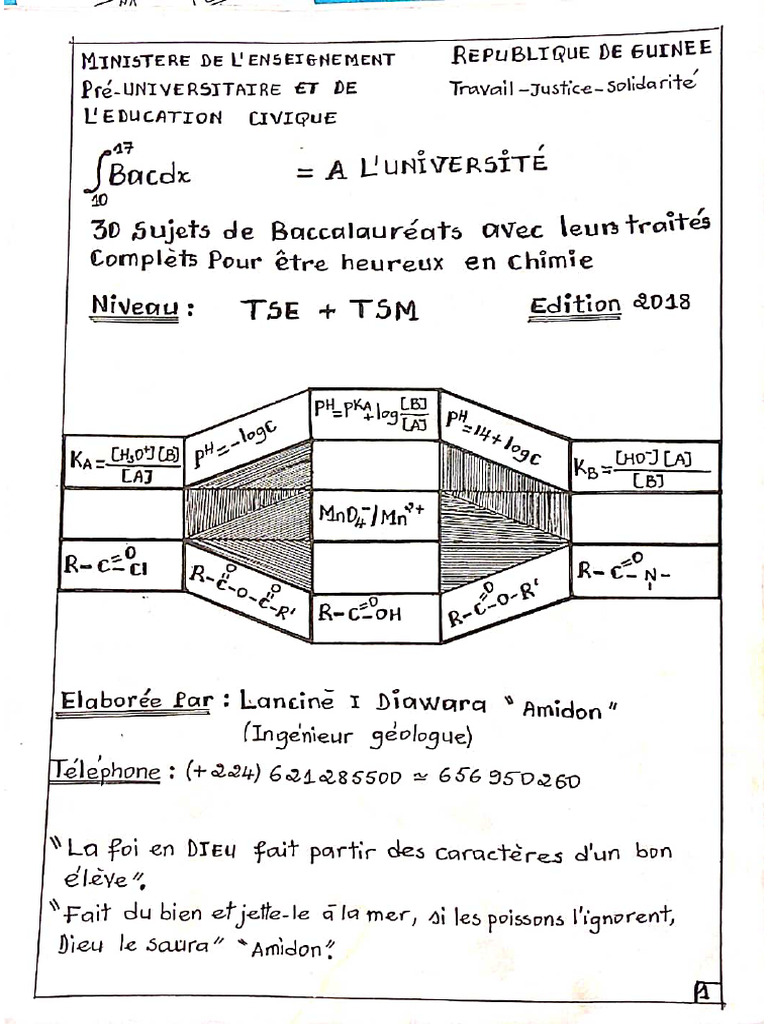 MINISTERE DE L'ENSEIGNEMENT
PRé-UNIVERSITAIRE ET DE
L'EDUCATION CIVIQUE
REPUBLIQUE DE GUINEE
Travail-Justice-Solidarité
∫₁₀¹⁷ Bacdx = A L'UNIVERSITÉ
30 Sujets de Baccalauréats avec leurs traités
Complèts Pour être heureux en Chimie
Niveau : TSE + TSM Edition 2018
KA = [H3O+][B]/[A]
PH = -logC
PH = PKA + log [B]/[A]
PH = 14 + logC
KB = [HO-][A]/[B]
MnO4-/Mn2+
R-C=O-Cl
R-C=O-O-C=O-R'
R-C=O-OH
R-C=O-O-R'
R-C=O-N-
Elaborée Par : Lancinè I Diawara "Amidon"
(Ingénieur géologue)
Téléphone : (+224) 621285500 ≃ 656 950260
"La foi en DIEU fait partir des caractères d'un bon
élève".
"Fait du bien et jette-le à la mer, si les poissons l'ignorent,
Dieu le saura" "Amidon".
P1